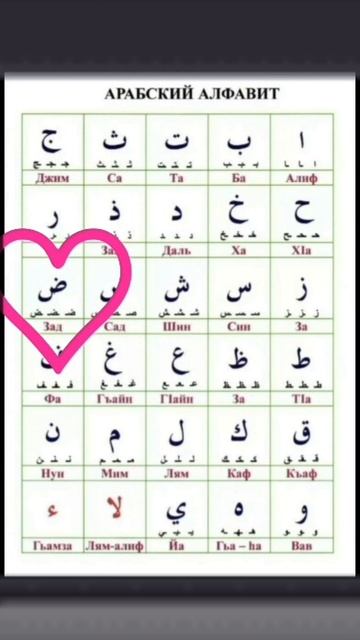 АРАБСКИЙ АЛФАВИТ
ج ث ت ب ا
Джим Са Та Ба Алиф
ر ذ د خ ح
Даль Ха ХIа
ض ش س ز
Зад Сад Шин Син За
غ ع ظ ط
Фа Гъайн ГIайн За ТIа
ن م ل ك ق
Нун Мим Лям Каф Къаф
ء لا ي ه و
Гьамза Лям-алиф Йа Гьа – һа Вав